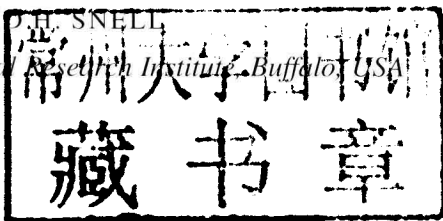 D.H. SNELL
Research Institute, Buffalo, USA
常州大学图书馆
藏书章